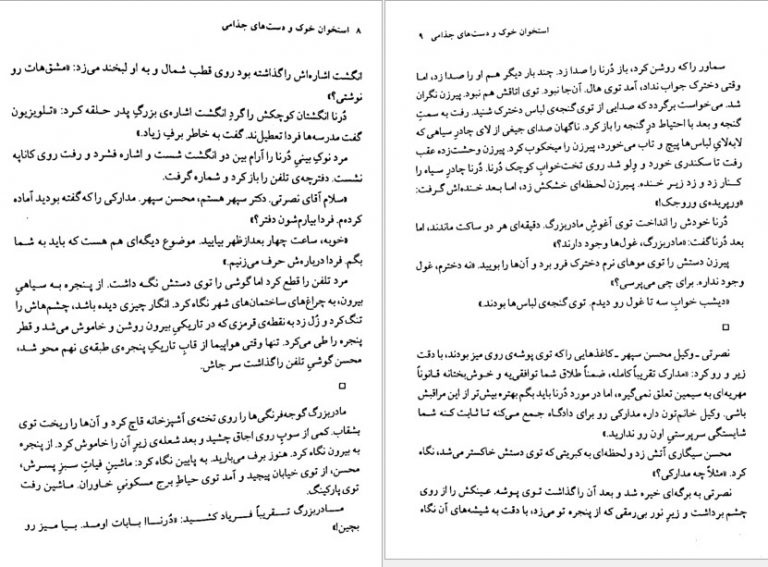 ۸ استخوان خوک و دست‌های جذامی
انگشت اشاره‌اش را گذاشته بود روی قطب شمال و به او لبخند می‌زد: «مشق‌هات رو
نوشتی؟»
دُرنا انگشتان کوچکش را گردِ انگشت اشاره‌ی بزرگِ پدر حلقه کرد: «تلویزیون
گفت مدرسه‌ها فردا تعطیل‌ند. گفت به خاطر برفِ زیاد.»
مرد نوک بینی دُرنا را آرام بین دو انگشت شست و اشاره فشرد و رفت روی کاناپه
نشست. دفترچه‌ی تلفن را باز کرد و شماره گرفت.
«سلام آقای نصرتی. دکتر سپهر هستم، محسن سپهر. مدارکی را که گفته بودید آماده
کرده‌م. فردا بیارم‌شون دفتر؟»
«خوبه، ساعت چهار بعدازظهر بیایید. موضوع دیگه‌ای هم هست که باید به شما
بگم. فردا درباره‌ش حرف می‌زنیم.»
مرد تلفن را قطع کرد اما گوشی را توی دستش نگه داشت. از پنجره به سیاهیِ
بیرون، به چراغ‌های ساختمان‌های شهر نگاه کرد. انگار چیزی دیده باشد، چشم‌هاش را
تنگ کرد و زُل زد به نقطه‌ی قرمزی که در تاریکیِ بیرون روشن و خاموش می‌شد و قطر
پنجره را طی می‌کرد. تنها وقتی هواپیما از قابِ تاریکِ پنجره‌ی طبقه‌ی نهم محو شد،
محسن گوشیِ تلفن را گذاشت سر جاش.
□
مادربزرگ گوجه‌فرنگی‌ها را روی تخته‌ی آشپزخانه قاچ کرد و آن‌ها را ریخت توی
بشقاب. کمی از سوپِ روی اجاق چشید و بعد شعله‌ی زیرِ آن را خاموش کرد. از پنجره
به بیرون نگاه کرد. هنوز برف می‌بارید. به پایین نگاه کرد: ماشینِ فیاتِ سبزِ پسرش،
محسن، از توی خیابان پیچید و آمد توی حیاطِ برجِ مسکونیِ خاوران. ماشین رفت
توی پارکینگ.
مادربزرگ تقریباً فریاد کشید: «دُرنا! بابات اومد. بیا میز رو
بچین!»
استخوان خوک و دست‌های جذامی ۹
سماور را که روشن کرد، باز دُرنا را صدا زد. چند بار دیگر هم او را صدا زد، اما
وقتی دخترک جواب نداد، آمد توی هال. آن‌جا نبود. توی اتاقش هم نبود. پیرزن نگران
شد. می‌خواست برگردد که صدایی از توی گنجه‌ی لباس دخترک شنید. رفت به سمتِ
گنجه و بعد با احتیاط درِ گنجه را باز کرد. ناگهان صدای جیغی از لای چادرِ سیاهی که
لابه‌لای لباس‌ها پیچ و تاب می‌خورد، پیرزن را میخکوب کرد. پیرزن وحشت‌زده عقب
رفت تا سکندری خورد و وِلو شد روی تخت‌خوابِ کوچک دُرنا. دُرنا چادرِ سیاه را
کنار زد و زد زیر خنده. پیرزن لحظه‌ای خشکش زد، اما بعد خنده‌اش گرفت:
«ورپریده‌ی وروجک!»
دُرنا خودش را انداخت توی آغوشِ مادربزرگ. دقیقه‌ای هر دو ساکت ماندند، اما
بعد دُرنا گفت: «مادربزرگ، غول‌ها وجود دارند؟»
پیرزن دستش را توی موهای نرم دخترک فرو برد و آن‌ها را بویید. «نه دخترم، غول
وجود نداره. برای چی می‌پرسی؟»
«دیشب خوابِ سه تا غول رو دیدم. توی گنجه‌ی لباس‌ها بودند.»
□
نصرتی ـ وکیل محسن سپهر ـ کاغذهایی را که توی پوشه‌ی روی میز بودند، با دقت
زیر و رو کرد: «مدارک تقریباً کامله، ضمناً طلاق شما توافقی‌یه و خوش‌بختانه قانوناً
مهریه‌ای به سیمین تعلق نمی‌گیره، اما در مورد دُرنا باید بگم بهتره بیش‌تر از این مراقبش
باشی. وکیل خانم‌تون داره مدارکی رو برای دادگاه جمع می‌کنه تا ثابت کنه شما
شایستگی سرپرستیِ اون رو ندارید.»
محسن سیگاری آتش زد و لحظه‌ای به کبریتی که توی دستش خاکستر می‌شد، نگاه
کرد. «مثلاً چه مدارکی؟»
نصرتی به برگه‌ای خیره شد و بعد آن را گذاشت توی پوشه. عینکش را از روی
چشم برداشت و زیرِ نور بی‌رمقی که از پنجره تو می‌زد، با دقت به شیشه‌های آن نگاه